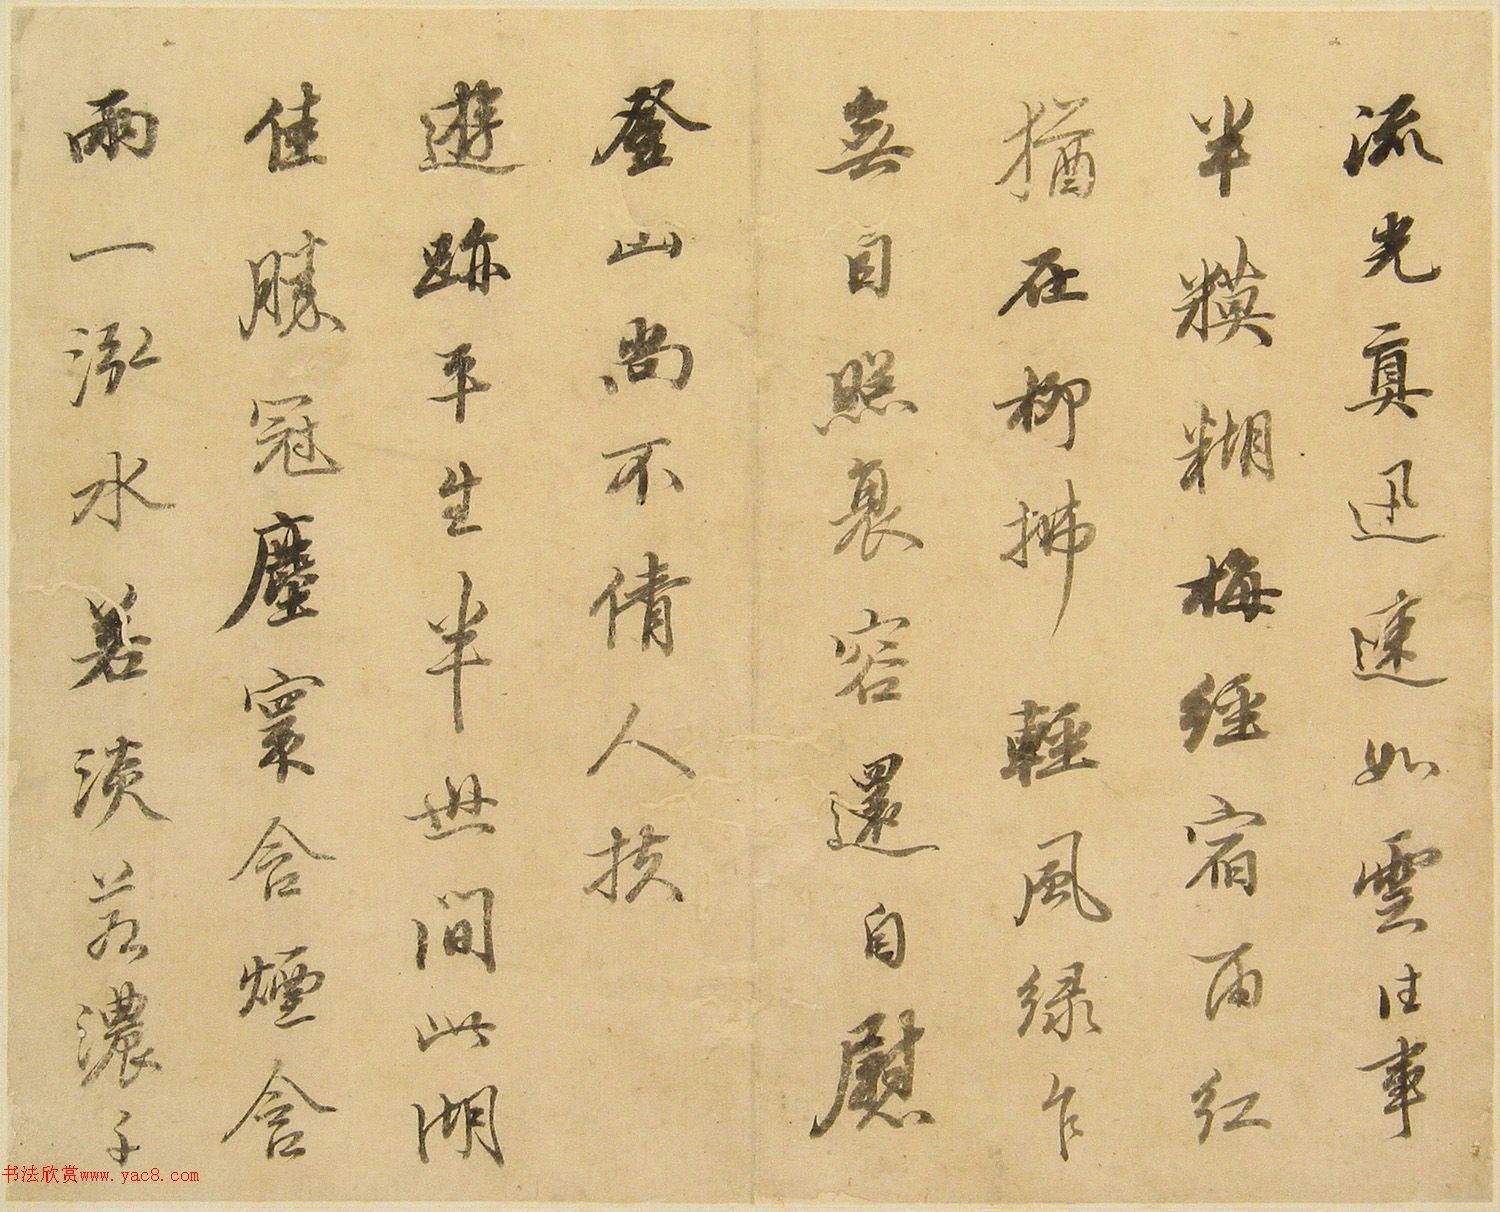 流光真迅速如雲往事
半糢糊梅經宿雨紅
猶在柳拂輕風綠乍
無自照衰容還自慰
登山尚不倩人扶
遊跡平生半世間此湖
佳勝冠塵寰含煙含
雨一泓水若淡若濃子
书法欣赏www.yac8.com